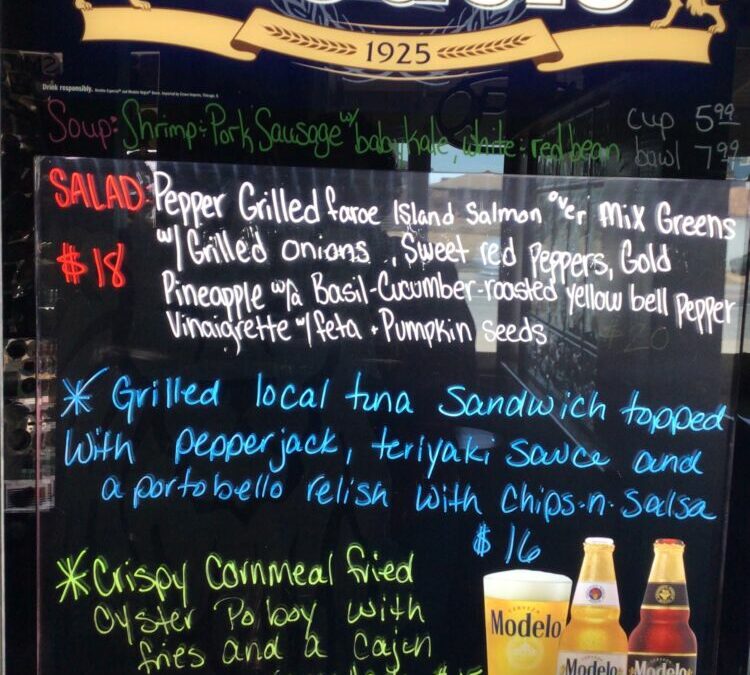 1925
Drink responsibly.
Soup: Shrimp + Pork Sausage w/ baby kale, white + red bean cup 5.99
bowl 7.99
SALAD: Pepper Grilled faroe Island Salmon over Mix Greens
$18 w/ Grilled onions, Sweet red Peppers, Gold
Pineapple w/a Basil-Cucumber-roasted yellow bell Pepper
Vinaigrette w/ feta + Pumpkin seeds
* Grilled local tuna Sandwich topped
with pepperjack, teriyaki sauce and
a portobello relish with Chips-n-Salsa
$16
* Crispy Cornmeal fried
Oyster Po boy with
fries and a Cajun
Modelo
Modelo Modelo